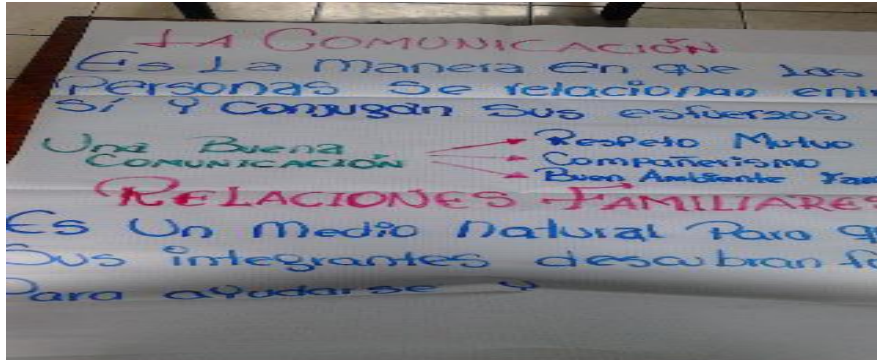 LA COMUNICACIÓN
Es La manera en que Las
Personas Se relacionan
Sí Y Conjugan Sus esfuerzos
Una Buena
COMUNICACIÓN
Respeto Mutuo
Compañerismo
Buen Ambiente
RELACIONES FAMILIARES
Es Un medio natural Para
Sus integrantes descubran
Para ayudarse Y